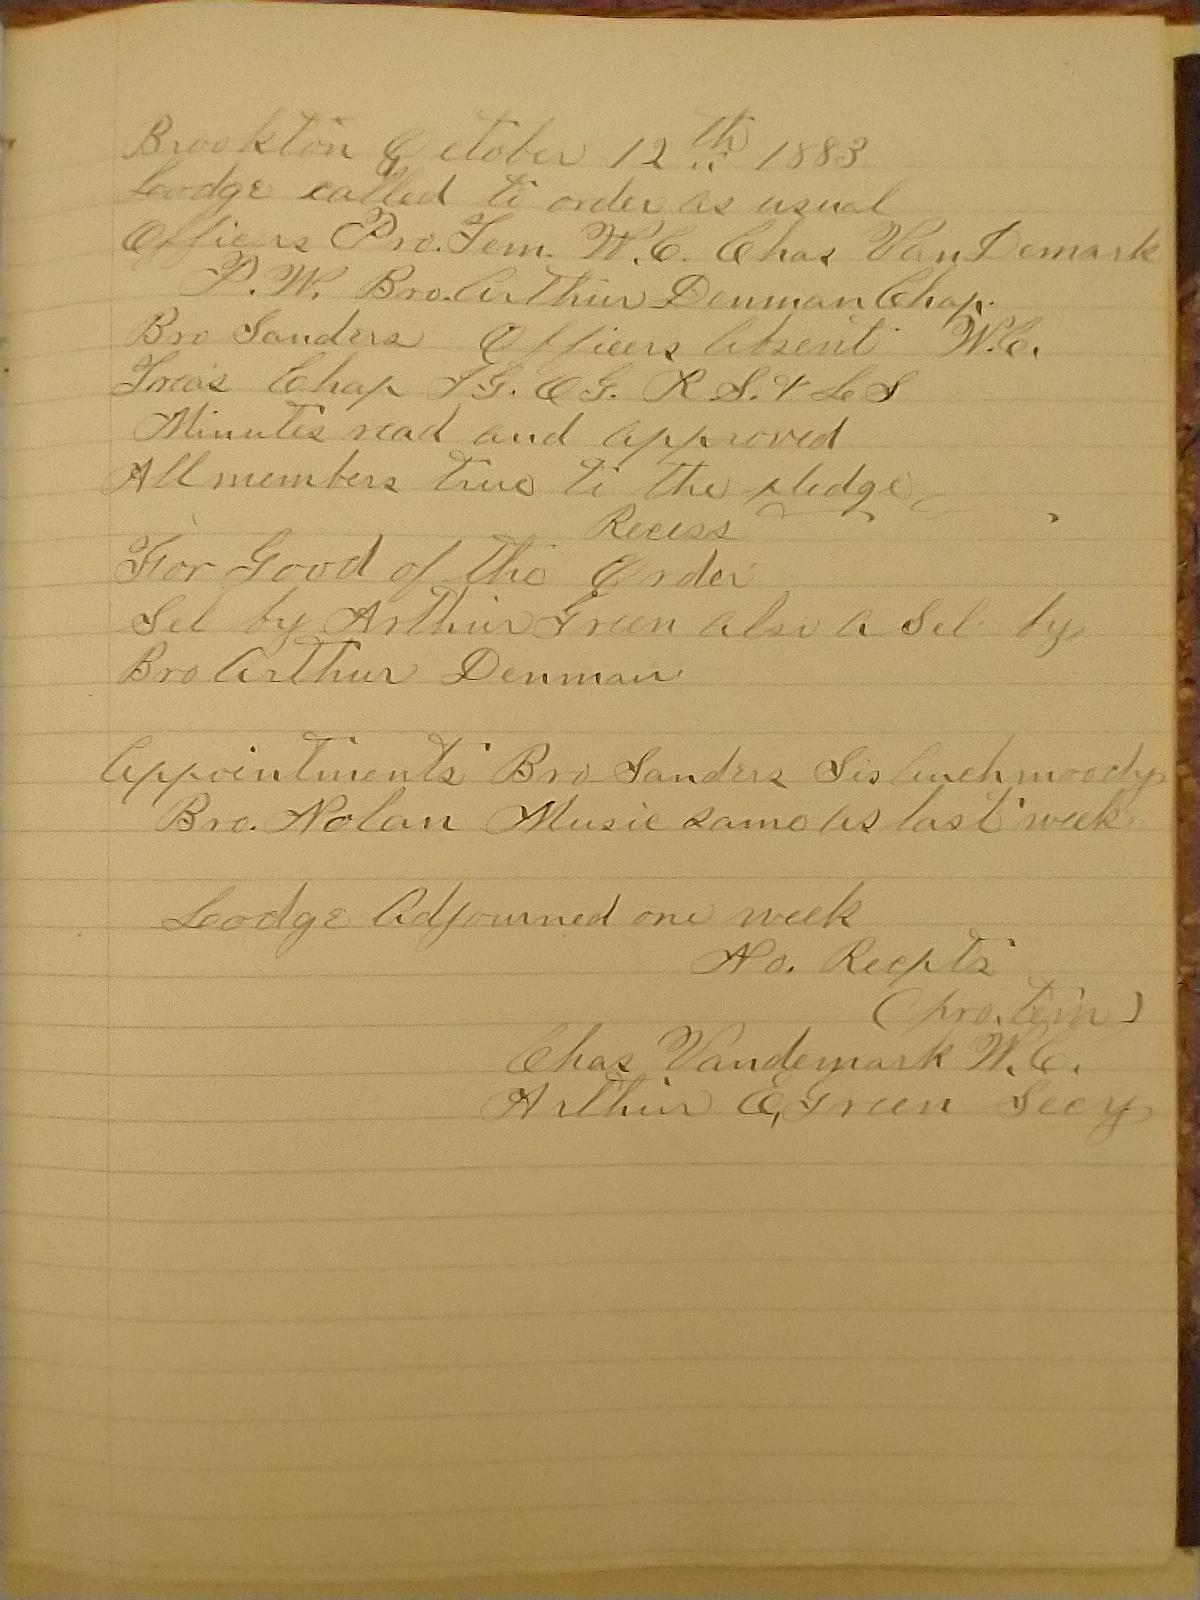 Brookton October 12th 1883
Lodge called to order as usual
Officers Pro. Tem. W.C. Chas Van Demark
P.W. Bro. Arthur Denman Chap.
Bro Sanders Officers Absent W.C.
Treas Chap I G. O G. R S. & L S
Minutes read and approved
All members true to the pledge
Recess
For Good of the Order
Sel by Arthur Green also a Sel by
Bro Arthur Denman
Appointments Bro Sanders Sis Auchmoody
Bro. Nolan Music same as last week
Lodge Adjourned one week
No. Recpts
(pro. tem)
Chas Vandemark W.C.
Arthur E, Green Secy